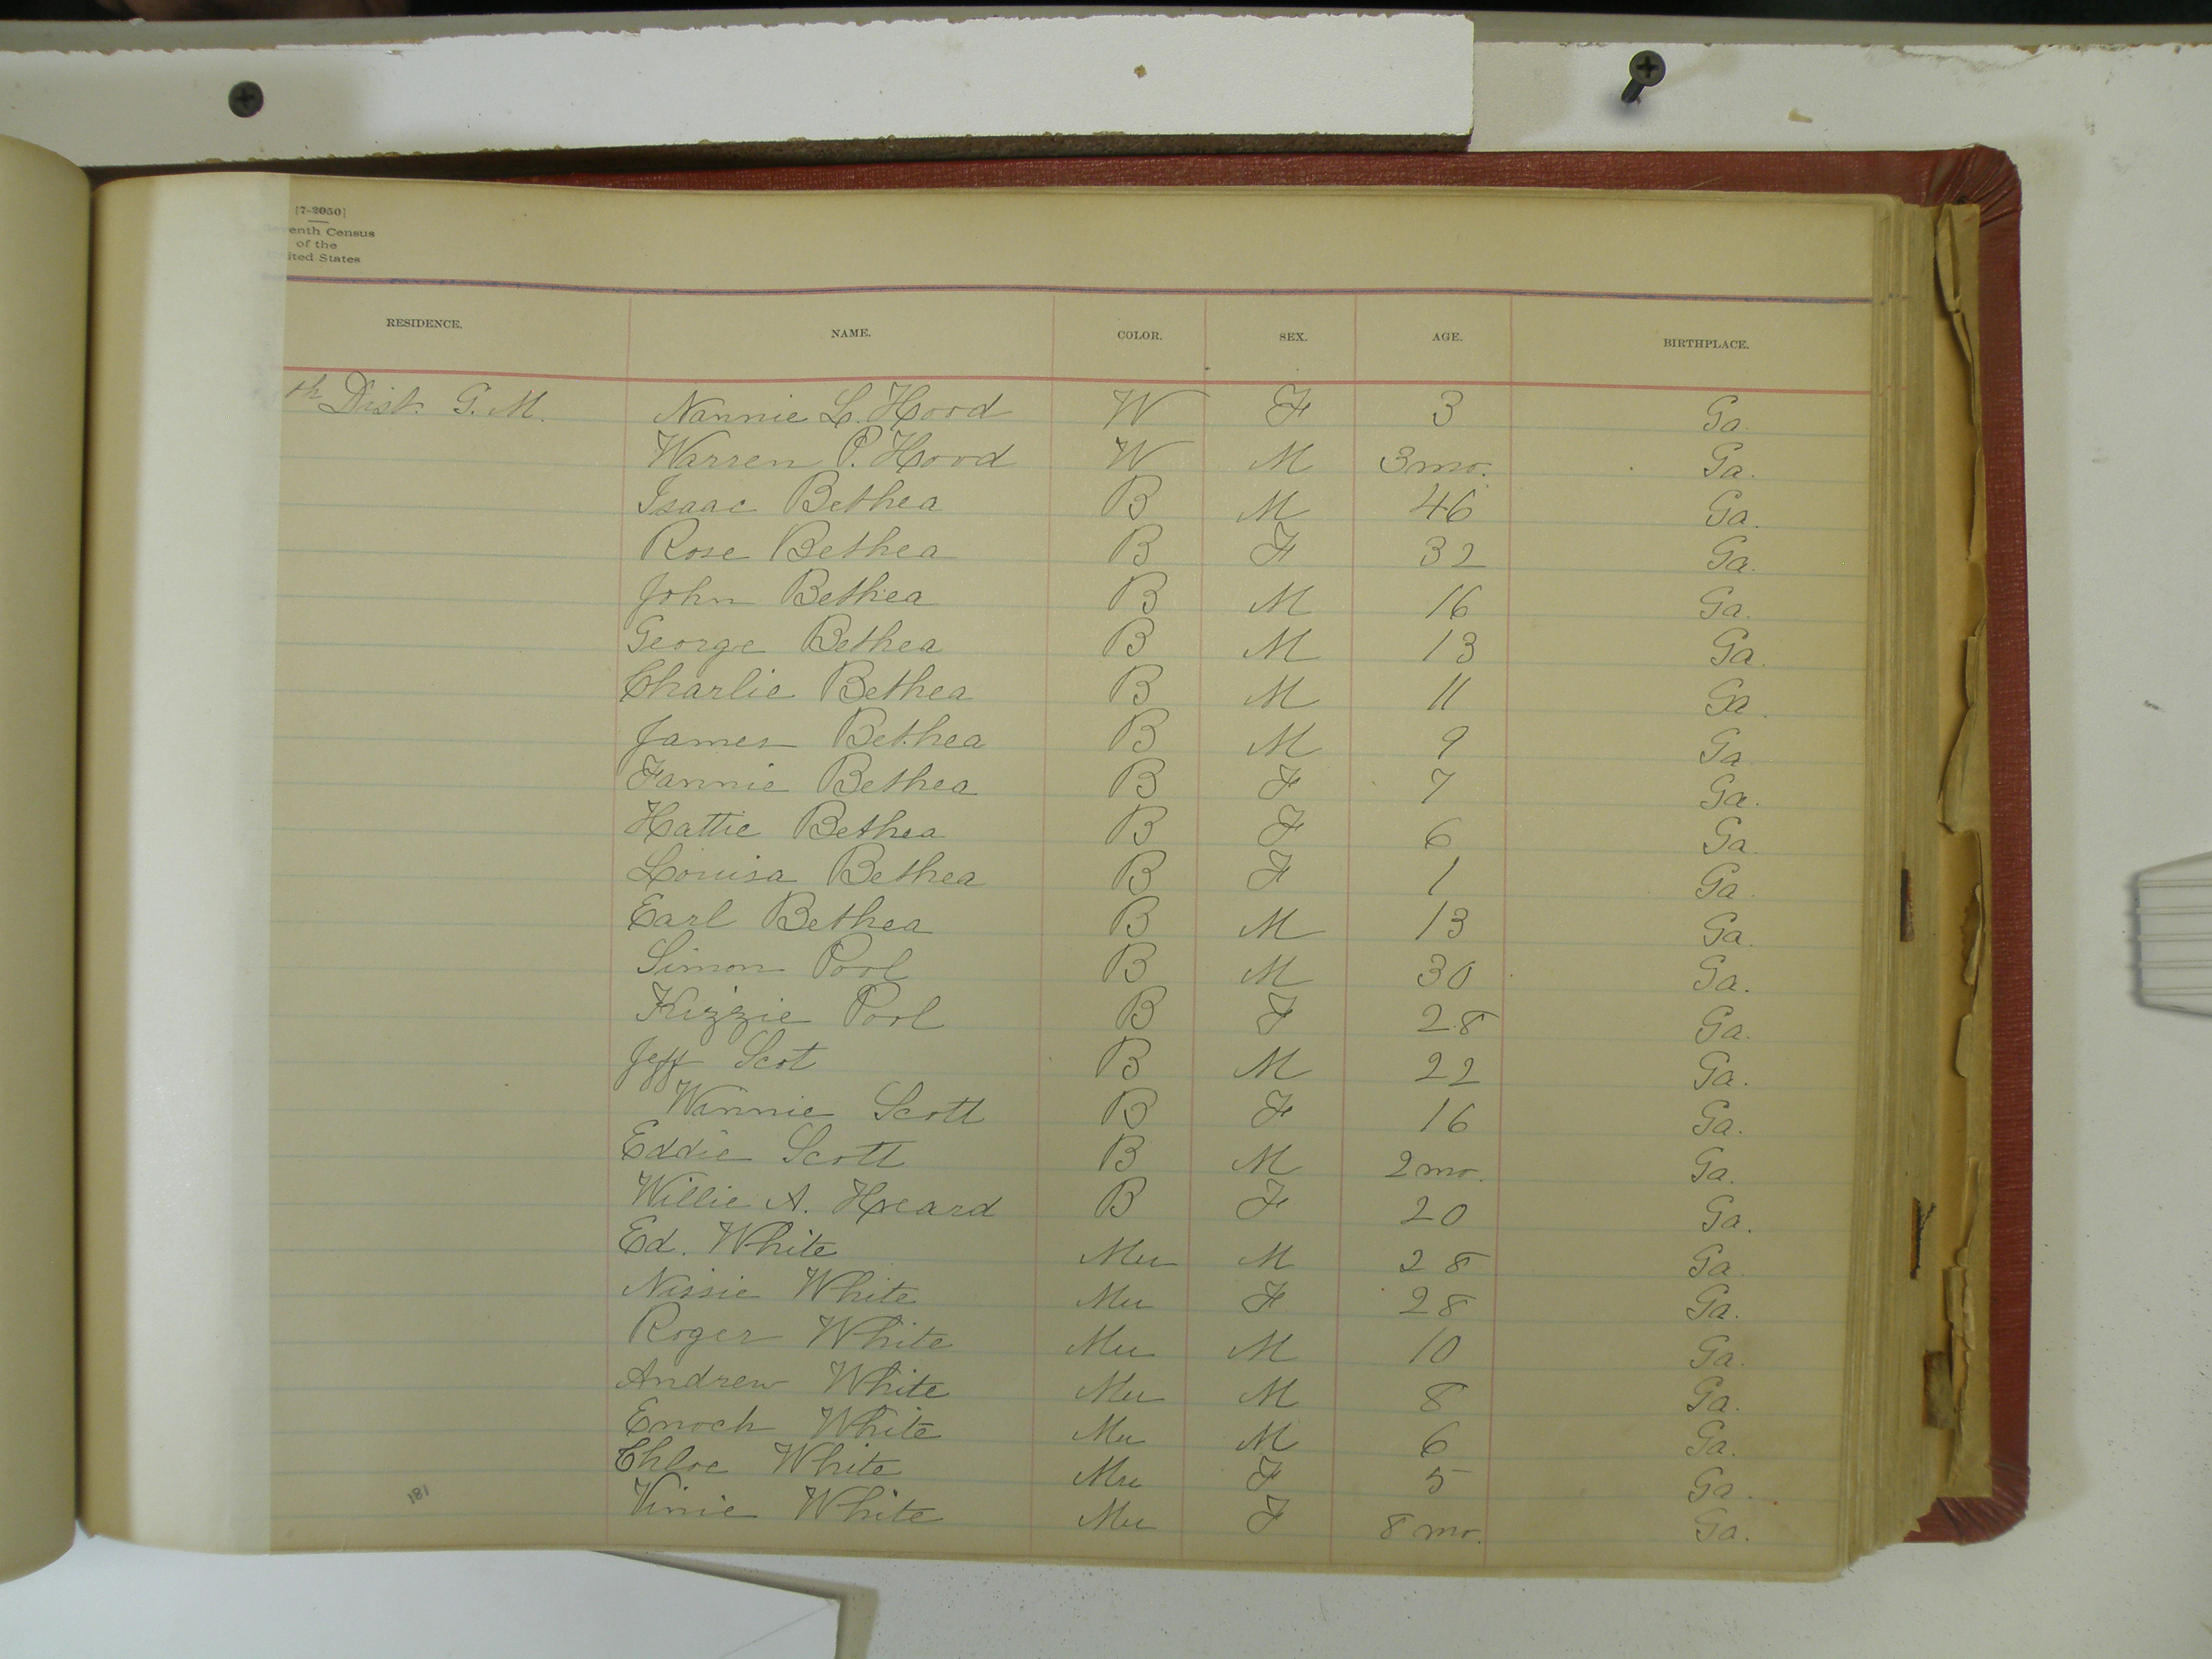 [7-2050]
venth Census
of the
ited States
RESIDENCE. NAME. COLOR. SEX. AGE. BIRTHPLACE.
th Dist. G. M. Nannie L. Hood W F 3 Ga.
Warren P. Hood W M 3 mo. Ga.
Isaac Bethea B M 46 Ga.
Rose Bethea B F 32 Ga.
John Bethea B M 16 Ga.
George Bethea B M 13 Ga.
Charlie Bethea B M 11 Ga.
James Bethea B M 9 Ga
Fannie Bethea B F 7 Ga.
Hattie Bethea B F 6 Ga
Louisa Bethea B F 1 Ga.
Earl Bethea B M 13 Ga.
Simon Pool B M 30 Ga.
Kizzie Pool B F 28 Ga.
Jeff Scot B M 22 Ga.
Winnie Scott B F 16 Ga.
Eddie Scott B M 2 mo. Ga.
Willie A. Heard B F 20 Ga.
Ed. White Mu M 28 Ga
Nissie White Mu F 28 Ga.
Roger White Mu M 10 Ga.
Andrew White Mu M 8 Ga.
Enoch White Mu M 6 Ga.
Chloe White Mu F 5 Ga.
Vinie White Mu F 8 mo. Ga.
181